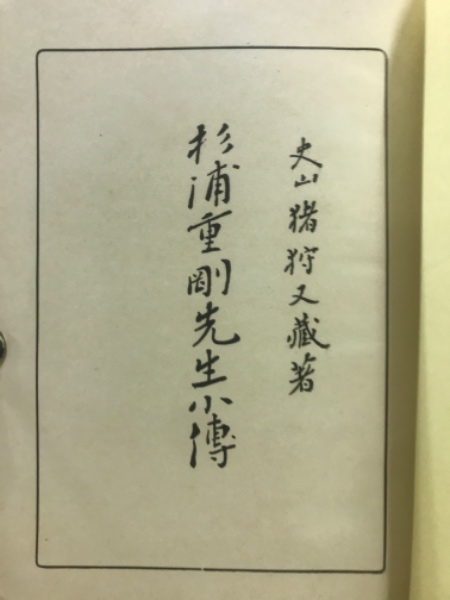 史山猪狩又藏著
杉浦重剛先生小傳